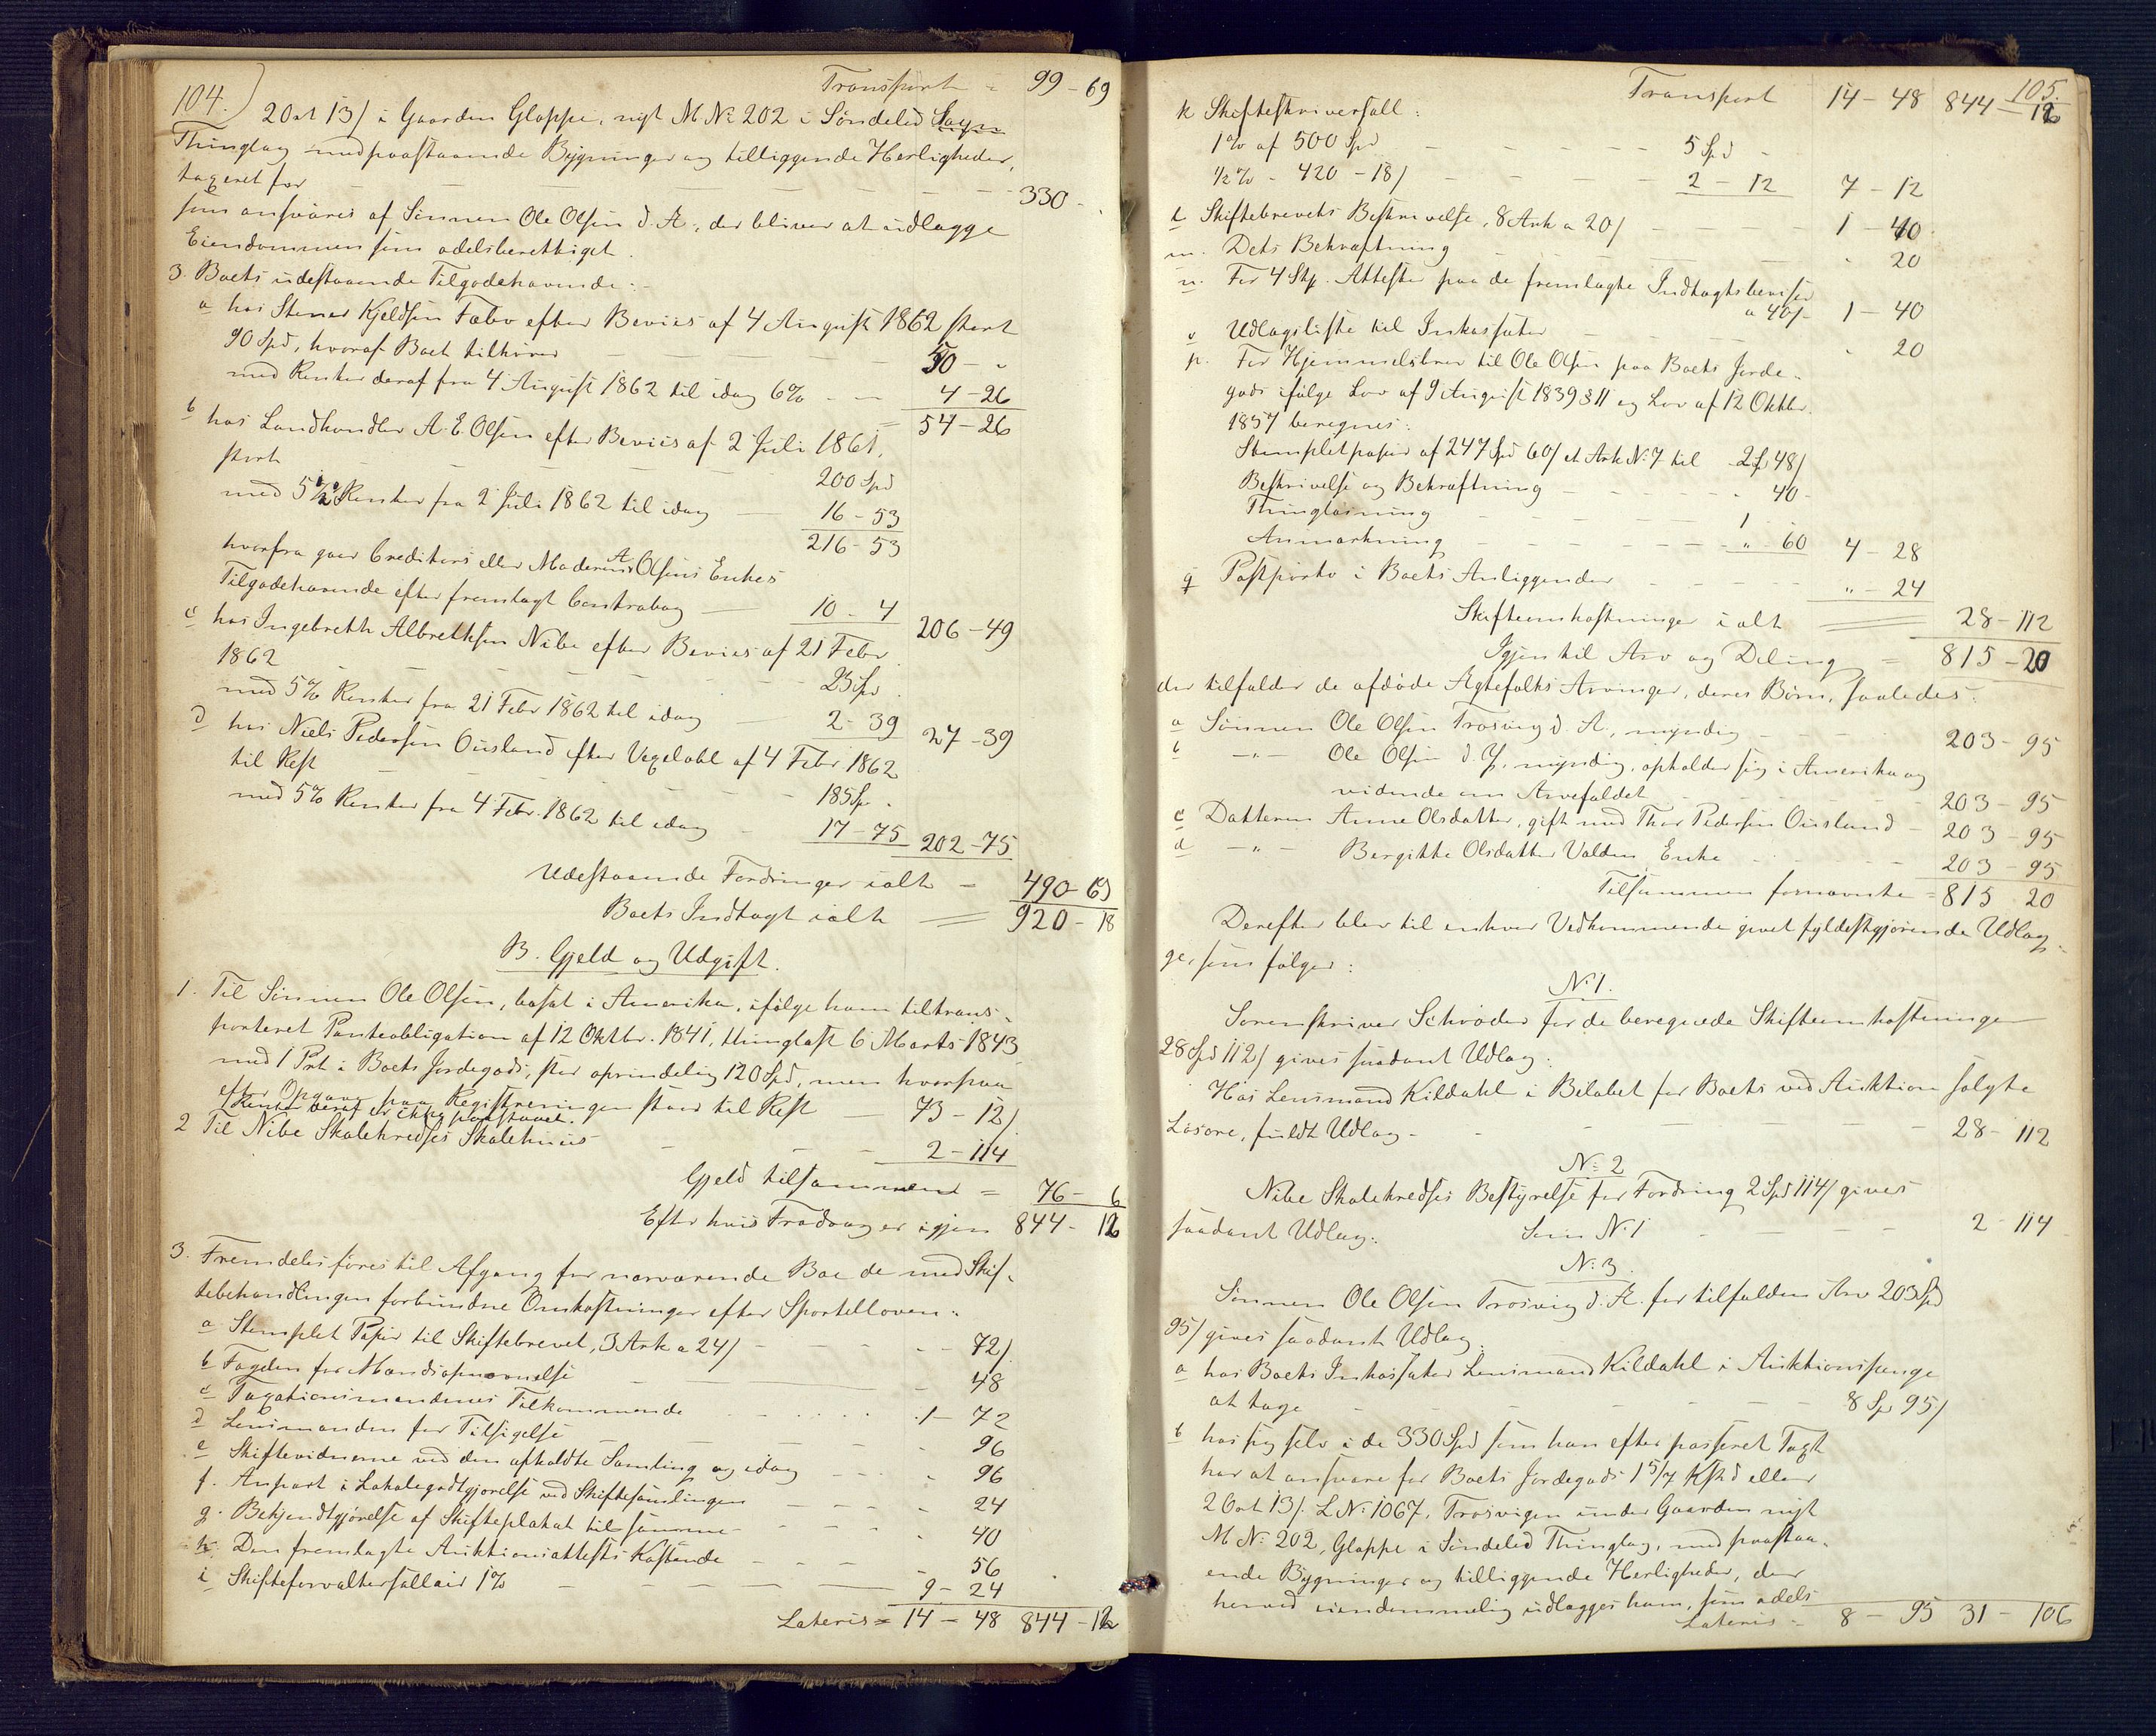 104.) Transport = 99 - 69
2 Ort 13/ i Gaarden Gloppe, nyt M. No 202 i Söndeled Sogn
Thinglag med paastaaende Bygninger og tilliggende Herligheder,
taxeret for - - - - - 330 -
som ansvares af Sönnen Ole Olsen d. Æ., der bliver at udlægge
Eiendommen som odelsberettiget.
3. Boets udestaaende Tilgodehavende:
a hos Stener Kjeldsen Fæbo efter Beviis af 4 August 1862 stort
90 Spd, hvoraf Boet tilhörer - - 50 - "
med Renter deraf fra 4 August 1862 til idag 6% - - 4 - 26
= 54 - 26
b hos Landhandler A. E. Olsen efter Beviis af 2 Juli 1861,
stort - - - 200 Spd
med 5 1/2 % Renter fra 2 Juli 1862 til idag - 16 - 53
216 - 53
hvorfra gaar Creditors eller Moderens A Olsens Enkes
Tilgodehavende efter fremlagt Contrabog - 10 - 4 206 - 49
c hos Ingebreth Albrethsen Nibe efter Beviis af 21 Febr.
1862 - - - 25 Spd
med 5% Renter fra 21 Febr 1862 til idag 2 - 39 27 - 39
d hos Niels Pedersen Ousland efter Vexelobl. af 4 Febr. 1862
til Rest - - - 185 Sp.
med 5% Renter fra 4 Febr. 1862 til idag - 17 - 75 202 - 75
Udestaaende Fordringer ialt = 490 - 69
Boets Indtægt ialt = 920 - 18
B. Gjeld og Udgift.
1. Til Sönnen Ole Olsen, bosat i Amerika, ifölge ham tiltrans-
porteret Panteobligation af 12 Oktbr. 1841, thinglæst 6 Marts 1843
med 1 Prt i Boets Jordegods, stor oprindelig 120 Spd, men hvorpaa
efter Opgave paa Registreringen staar til Rest 73 - 12/
Renter deraf er ikke paastaaet.
2 Til Nibe Skolekredses Skolehuus - - - 2 - 114
Gjeld tilsammen = 76 - 6
Efter hvis Fradrag er igjen 844 - 12
3. Fremdeles föres til Afgang for nærværende Bo de med Skif-
tebehandlingen forbundne Omkostninger efter Sportelloven:
a Stemplet Papir til Skiftebrevet, 3 Ark a 24/ - - - 72/
b Fogden for Mandsopnævnelse - - 48
c Taxationsmændenes Tilkommende - - - 1 - 72
d Lensmanden for Tilsigelse - - - 96
e Skiftevidnerne ved den afholdte Samling og idag - - 96
f. Anpart i Lokalegodtgjörelse ved Skiftesamlingen - - - 24
g. Bekjendtgjörelse af Skifteplakat til samme - - - 40
h. Den fremlagte Auktionsattests Kostende - - - 56
i Skifteforvaltersallair 1% - - - 9 - 24
Lateris = 14 - 48 844 - 12
105.
Transport 14 - 48 844 - 12
k Skifteskriversall:
1% af 500 Spd - - - - 5 Spd -
1/2 % - 420 - 18/ - - - 2 - 12 7 - 12
l Skiftebrevets Beskrivelse, 8 Ark a 20/ - - - - 1 - 40
m. Dets Bekræftning - - - " 20
n. For 4 Stk. Attester paa de fremlagte Indtægtsbeviser
a 40/ - 1 - 40
o Udlægsliste til Inkassator - - - " 20
p. For Hjemmelsbrev til Ole Olsen paa Boets Jorde-
gods ifölge Lov af 9 August 1839 § 11 og Lov af 12 Oktbr.
1857 beregnes:
Stempletpapir af 247 Spd 60/ et Ark No 7 til 2 Sp 48/
Beskrivelse og Bekræftning - - - " 40 -
Thinglæsning - - - - 1 "
Anmærkning - - - - " - 60 4 - 28
q Postporto i Boets Anliggender - - - - " - 24
Skifteomkostninger i alt = 28 - 112
Igjen til Arv og Deling = 815 - 20
der tilfalder de afdöde Ægtefolks Arvinger, deres Börn, saaledes:
a Sönnen Ole Olsen Trosvig d. Æ., myndig - - - 203 - 95
b - " - Ole Olsen d. Y., myndig, opholder sig i Amerika og
vidende om Arvefaldet - - - 203 - 95
c Datteren Anne Olsdatter, gift med Thor Pedersen Ousland - 203 - 95
d - " - Bergitte Olsdatter Valden Enke - - 203 - 95
Tilsammen fornævnte = 815 20
Derefter blev til enhver Vedkommende givet fyldestgjörende Udlæg-
ge, som fölger:
No 1.
Sorenskriver Schröder for de beregnede Skifteomkostninger
28 Spd 112/ gives saadant Udlæg:
Hos Lensmand Kildahl i Belöbet for Boets ved Auktion solgte
Lösöre, fuldt Udlæg - - - - 28 - 112
No 2
Nibe Skolekredses Bestyrelse for Fordring 2 Spd 114/ gives
saadant Udlæg: Som No 1 - - - 2 - 114
No 3.
Sönnen Ole Olsen Trosvig d. Æ. for tilfalden Arv 203 Spd
95/ gives saadant Udlæg:
a hos Boets Inkassator Lensmand Kildahl i Auktionspenge
at tage - - - - 8 Sp 95/
b hos sig selv i de 330 Spd som han efter passeret Taxt
har at ansvare for Boets Jordegods 1 5/7 Kshd eller
2 Ort 13/. L. No 1067, Trosvigen under Gaarden nyt
M. No 202, Gloppe i Söndeled Thinglag, med paastaa-
ende Bygninger og tilliggende Herligheder, der
herved eiendommelig udlægges ham, som odels
Lateris = 8 - 95 31 - 106